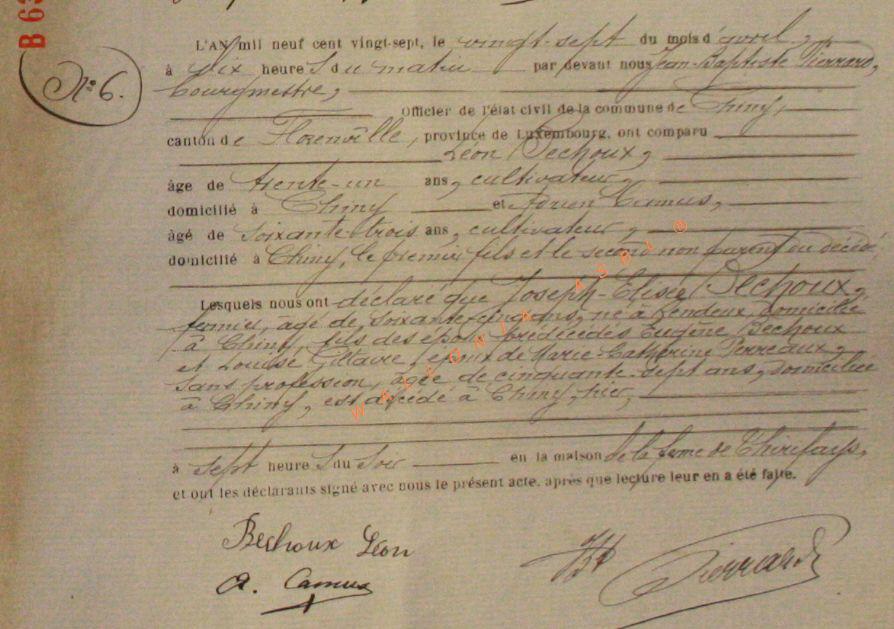 B 63
N° 6.
L'AN mil neuf cent vingt-sept, le vingt-sept du mois d'avril,
à dix heures du matin par devant nous Jean-Baptiste Pierrard,
bourgmestre,
Officier de l'état civil de la commune de Chiny,
canton de Florenville, province de Luxembourg, ont comparu
Léon Bechoux,
âge de trente-un ans, cultivateur,
domicilié à Chiny et Adrien Camus,
âgé de soixante-trois ans, cultivateur,
domicilié à Chiny, le premier fils et le second non parent du décédé,
Lesquels nous ont déclaré que Joseph-Elisée Bechoux,
fermier, âgé de soixante-cinq ans, né à Rendeux, domicilié
à Chiny, fils des époux prédécédés Eugène Bechoux
et Louise, époux de Marie-Catherine Perreaux,
sans profession, âgée de cinquante-sept ans, domiciliée
à Chiny, est décédé à Chiny, hier,
à sept heures du soir en la maison de la ferme de
et ont les déclarants signé avec nous le présent acte, après que lecture leur en a été faite.
Bechoux Léon
A. Camus
Pierrard